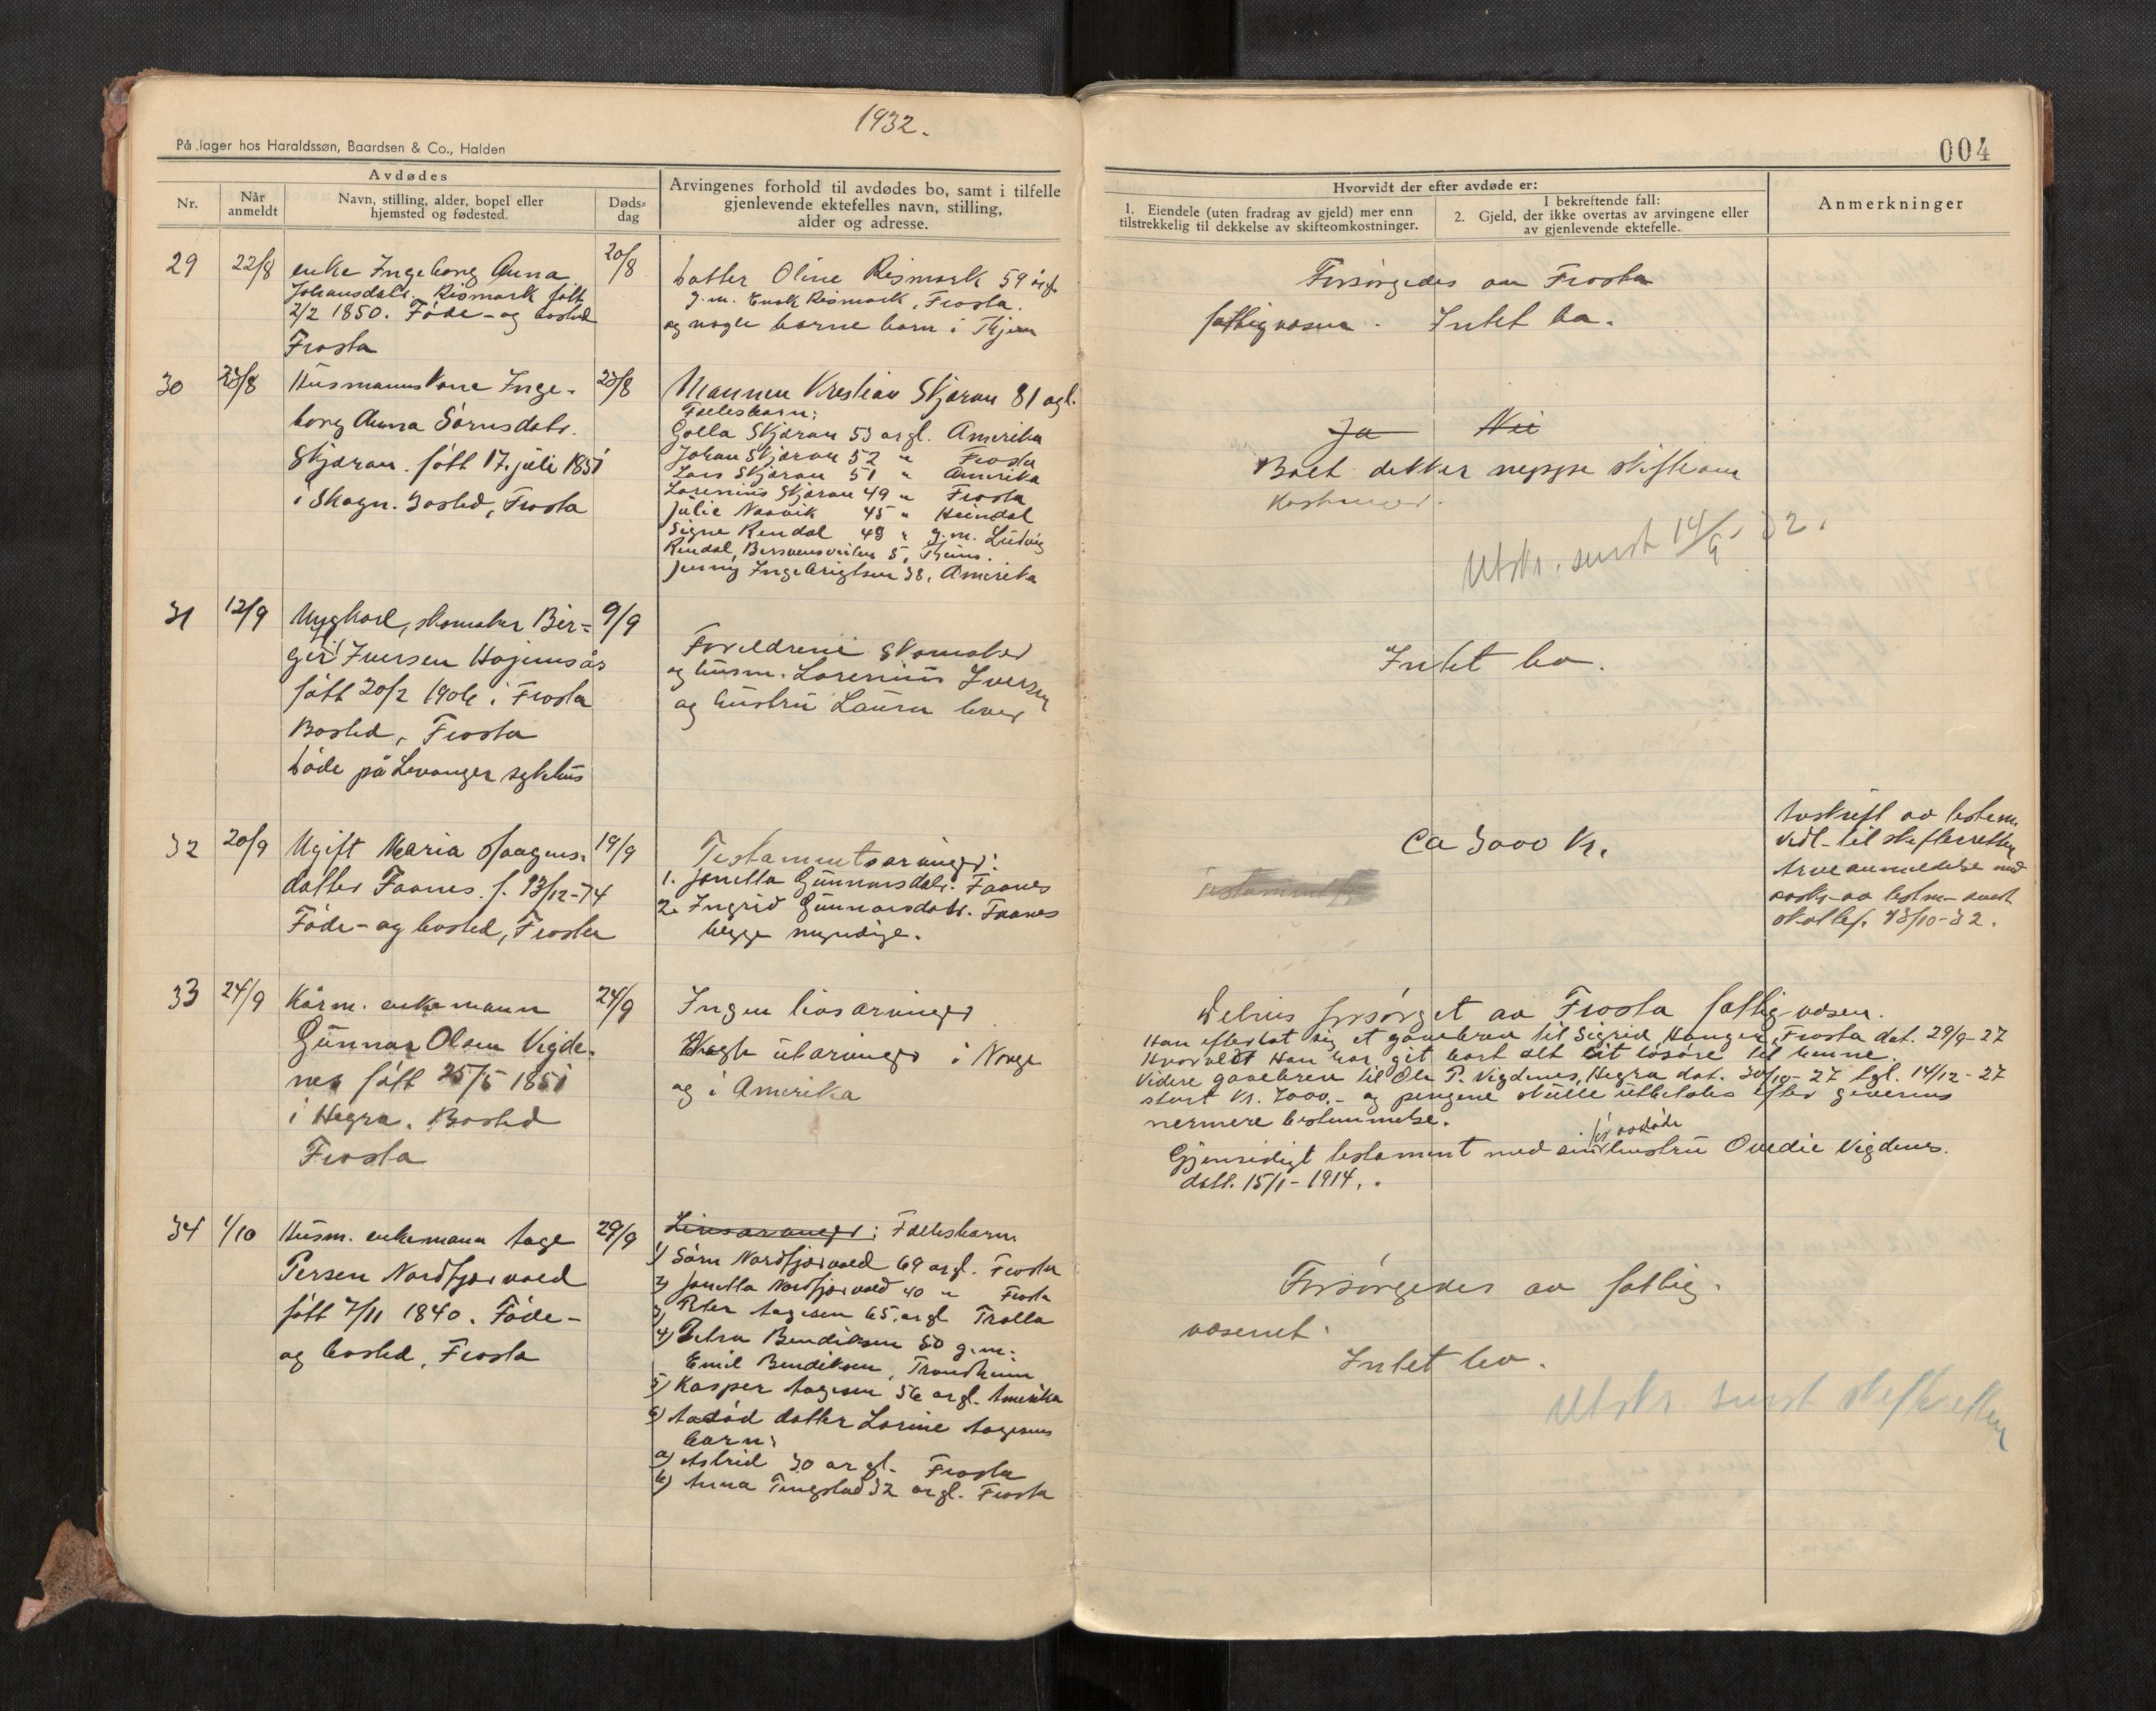 1932.
På lager hos Haraldssøn, Baardsen & Co., Halden
Avdødes
Nr.
Når anmeldt
Navn, stilling, alder, bopel eller hjemsted og fødested.
Døds-dag
Arvingenes forhold til avdødes bo, samt i tilfelle
gjenlevende ektefelles navn, stilling,
alder og adresse.
004
Hvorvidt der efter avdøde er:
1. Eiendele (uten fradrag av gjeld) mer enn
tilstrekkelig til dekkelse av skifteomkostninger.
I bekreftende fall:
2. Gjeld, der ikke overtas av arvingene eller
av gjenlevende ektefelle.
Anmerkninger
29 22/8 enke Ingeborg Anna 20/8
Johansdatr. Rismark født
2/2 1850. Føde- og bosted
Frosta
Datter Oline Rismark 59 årgl.
g.m. Enok Rismark, Frosta.
og nogle barnebarn i
Forsørgedes av Frosta
fattigvesen. Intet bo.
30 23/8 Husmannskone Inge- 23/8
borg Anna Sørnsdatr.
Skjæran. født 17. juli 1851
i Skogn. Bosted, Frosta
Mannen Kristian Skjæran 81 agl.
Fællesbarn:
Golla Skjæran 53 argl. Amerika
Johan Skjæran 52 " Frosta
Lars Skjæran 51 " Amerika
Lorenius Skjæran 49 " Frosta
Julie Naavik 45 " Heindal
Signe Rendal 43 " g.m. Ludvig
Rendal, 5, Theim.
Jenny Ingebrigtsen 38, Amerika
Ja Nei
Boet dekker neppe skifteom
kostninger.
Utskr. sendt 14/9 32.
31 12/9 Ungkarl, skomaker Bir- 9/9
ger Iversen Hojemsås
født 20/2 1906 i Frosta
Bosted, Frosta
Døde på Levanger sykehus
Foreldrene skomaker
og husm. Lorenius Iversen
og hustru Laura lever
Intet bo.
32 20/9 Ugift Maria Haagens- 19/9
datter Faanes f. 13/12-74
Føde- og bosted, Frosta
Testamentsarvinger:
1. Jonetta Gunnarsdatr. Faanes
2. Ingrid Gunnarsdatr. Faanes
begge myndige.
Ca 3000 Kr.
Avskrift av testm.
vedl. til skifteretten
Arveanmeldelse med
avskr. av testm. sendt
skattef. 13/10-32.
33 24/9 Kårm. enkemann 24/9
Gunnar Olsen Vigde-
nes født 25/5 1851
i Hegra. Bosted
Frosta
Ingen livsarvinger
Nogle utarvinger i Norge
og i Amerika
Delvis forsørget av Frosta fattigvesen.
Han efterlot sig et gavebrev til Sigrid Hauger, Frosta dat. 29/9-27
hvorved han har git bort alt sit løsøre til henne.
Videre gavebrev til Ole P. Vigdenes, Hegra dat. 30/10-27 tgl. 14/12-27
stort kr. 7000.- og pengene skulle utbetales efter giverens
nermere bestemmelse.
Gjensidigt testament med sin før avdøde hustru Ovedie Vigdenes.
datt. 15/1-1914.
34 1/10 Husm. enkemann Aage 29/9
Persen Nordfjærvoed
født 7/11 1840. Føde-
og bosted, Frosta
Livsarvinger: Fællesbarn
1) Sørn Nordfjærvoed 69 argl. Frosta
2) Jonetta Nordfjærvoed 40 " Frosta
3) Peter Aagesen 65 argl Trolla
4) Petra Bendiksen 50 g.m.
Emil Bendiksen, Trondheim
5) Kasper Aagesen 56 argl. Amerika
6) Avdød datter Lorine Aagesens
barn:
a) Astrid 30 argl. Frosta
b) Anna Tingstad 32 argl. Frosta
Forsørgedes av fattig-
vesenet.
Intet bo.
Utskr. sendt skifteretten